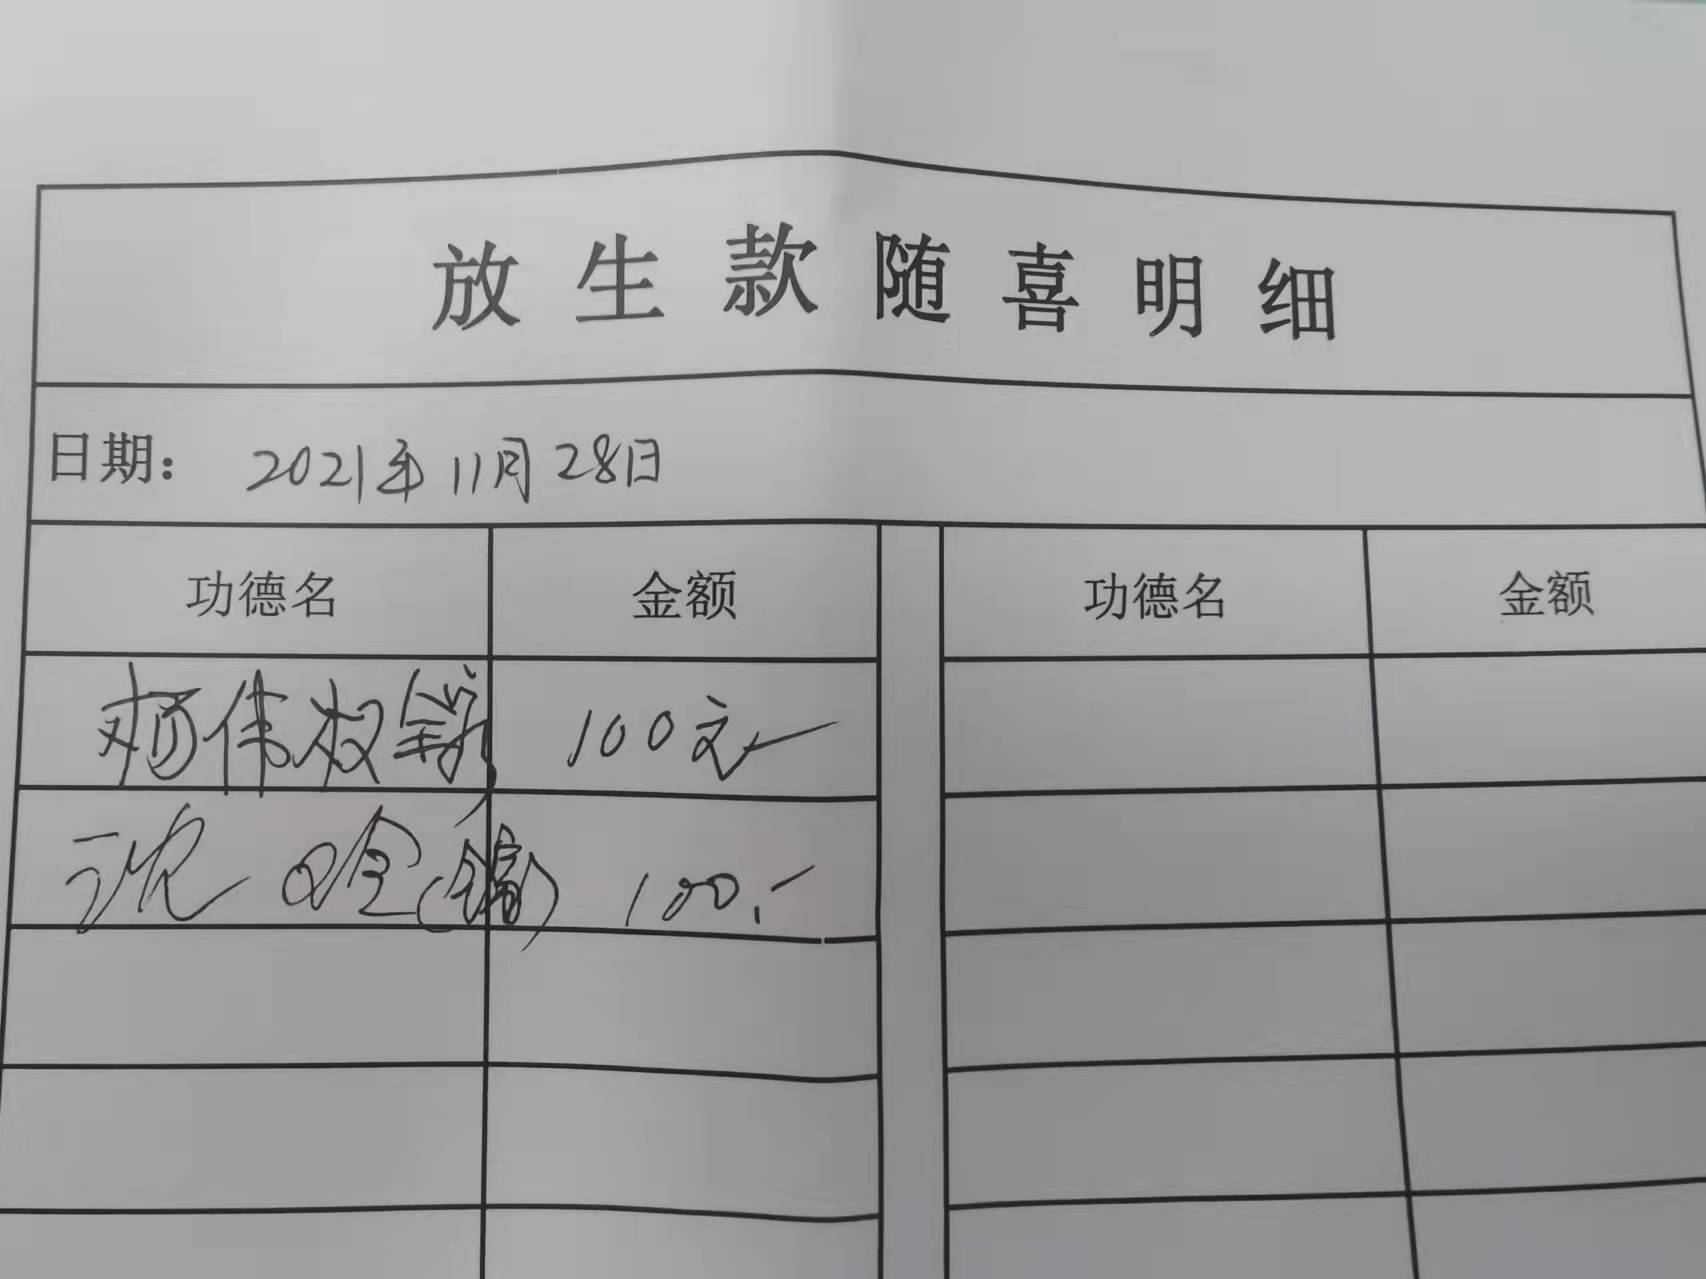 放生款随喜明细
日期： 2021年11月28日
功德名 金额 功德名 金额
伟权 100元
100.-